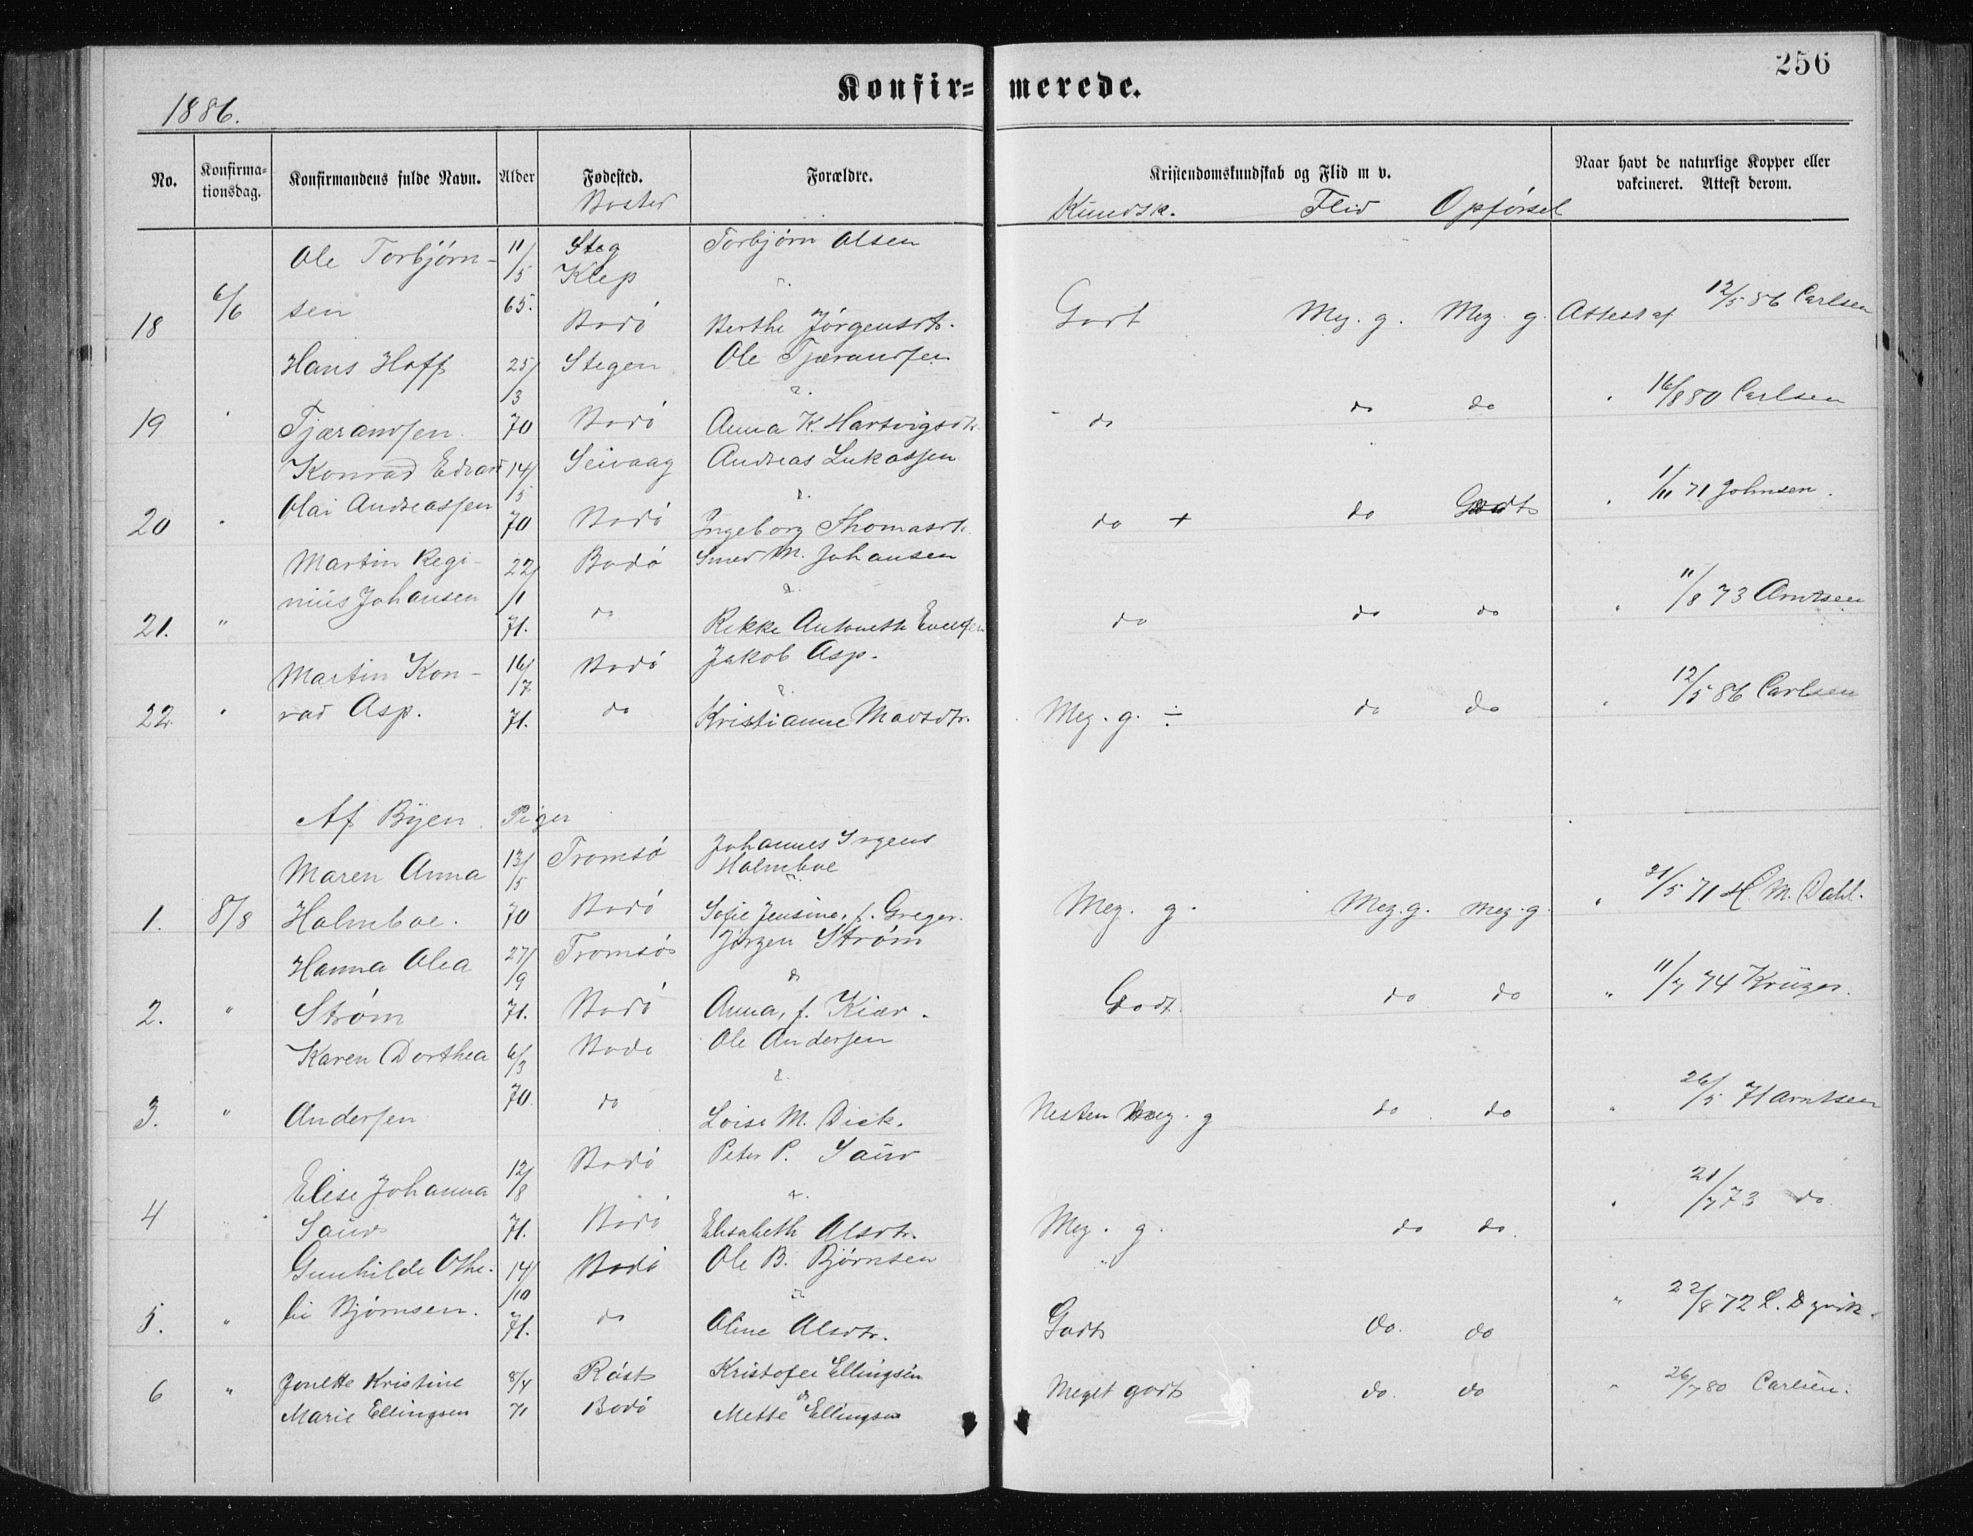 256
Konfir= merede.
1886.
No. Konfirma-tionsdag. Konfirmandens fulde Navn. Alder Fødested. Forældre. Kristendomskundskab og Flid m v. Naar havt de naturlige Kopper eller vakcineret. Attest derom.
Bosted Kundsk. Flid Opførsel
Ole Torbjørn- 11/5 Steg Torbjørn Olsen
Klep
18 6/6 sen 65. Bodø Berthe Jørgensdt. Godt Meg. g. Meg. g. Attest af 12/5 86 Carlsen
Hans Hoff 25/3 Stegen Ole Tjærandsen
19 " Tjærandsen 70 Bodø Anna K. Hartvigsdt. do do do " 16/8 80 Carlsen
Konrad Edvard 14/5 Seivaag Andreas Lukassen
20 " Olai Andreassen 70 Bodø Ingeborg Thomasdt. do + do Godt " 1/11 71 Johnsen.
Martin Regi- 22/1 Bodø Smed M. Johansen
21. " nius Johansen 71. do Rikke Antonette do do do " 11/8 73 Arntsen
Martin Kon- 16/7 Bodø Jakob Asp.
22 " rad Asp. 71. do Kristianne Madsdtr. Meg. g. ÷ do do " 12/5 86 Carlsen
Af Byen. Piger
Maren Anna 13/5 Tromsø Johannes Irgens Holmboe
1. 8/8 Holmboe. 70 Bodø Sofie Jensine, f. Greger. Meg. g. Meg. g. Meg. g. " 21/5 71 H. M. Dahl.
Hanna Olea 27/9 Tromsø Jørgen Strøm
&
2. " Strøm 71. Bodø Anna, f. Kiær. Godt. do do " 11/7 74 Krüger.
Karen Dorthea 6/3 Bodø Ole Andersen
3. " Andersen 70. do Loise M. Dick. Nesten meg. g do do " 26/5 71 Arntsen
Elise Johanna 12/8 Bodø Peter P. Saur
4 " Saur 71. Bodø Elisabeth Olsdtr. Meg. g. do do. " 21/7 73 do
Gunhilde Othe- 14/10 Bodø Ole B. Bjørnsen
5. " lie Bjørnsen. 71. do Oline Olsdtr. Godt do. do " 22/8 72
6 " Jonette Kristine 8/4 Røst Kristofer Ellingsen Meget godt do. do " 26/7 80 Carlsen.
Marie Ellingsen 71 Bodø Mette Ellingsen